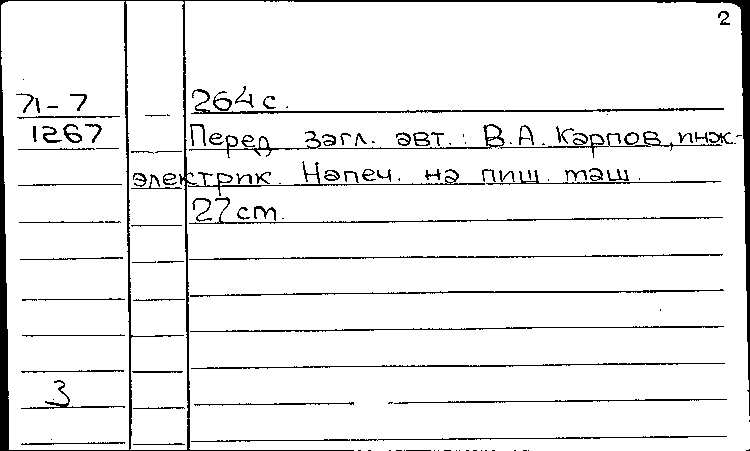 2
71-7 264 с.
1267 Перед загл. авт.: В.А. Карпов, инж.-
электрик. Напеч. на пиш. маш.
27 см.
3